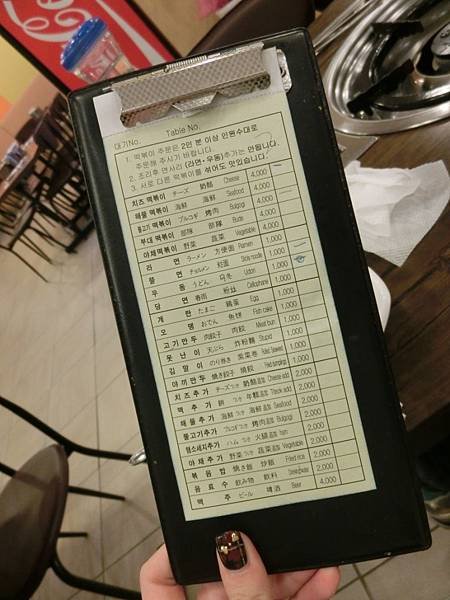 대기No. Table No.
1. 떡볶이 주문은 2인 분 이상 인원수대로
주문해 주시기 바랍니다.
2. 조리후 면사리 (라면·우동)추가는 안됩니다.
3. 서로 다른 떡볶이를 섞어도 맛있습니다.
치즈 떡볶이 チーズ 奶酪 Cheese 4,000
해물 떡볶이 海鮮 海鮮 Seafood 4,000
불고기 떡볶이 プルコギ 烤肉 Bulgogi 4,000
부대 떡볶이 部隊 部隊 Bude 4,000
야채떡볶이 野菜 蔬菜 Vegetable 4,000
라 면 ラーメン 方便面 Ramen 1,000
쫄 면 チョルメン 1,000
우 동 うどん 乌冬 Udon 1,000
당 면 春雨 粉丝 Cellophane 1,000
계 란 たまご 鷄菜 Egg 1,000
오 뎅 おでん 魚餅 Fish cake 1,000
고기만두 肉餃子 肉餃 Meat bun 1,000
못 난 이 天ぷら 炸粉麵 Stupid 1,000
김 말 이 のり巻き 紫菜卷 1,000
야끼만두 焼き餃子 燒餃 1,000
치즈추가 チーズつき 奶酪追加 Cheese add 2,000
떡 추 가 餅 つき 年糕追加 2,000
해물추가 海鮮つき 海鮮追加 Seafood 2,000
불고기추가 プルコギつき 烤肉追加 Bulgogi 2,000
햄소세지추가 ハム つき 火腿追加 ham 2,000
야채추가 野菜つき 蔬菜追加 Vegetable 2,000
볶 음 밥 焼き飯 炒飯 Fried rice 2,000
음 료 수 飲み物 飲料 2,000
맥 주 ビール 啤酒 Beer 4,000